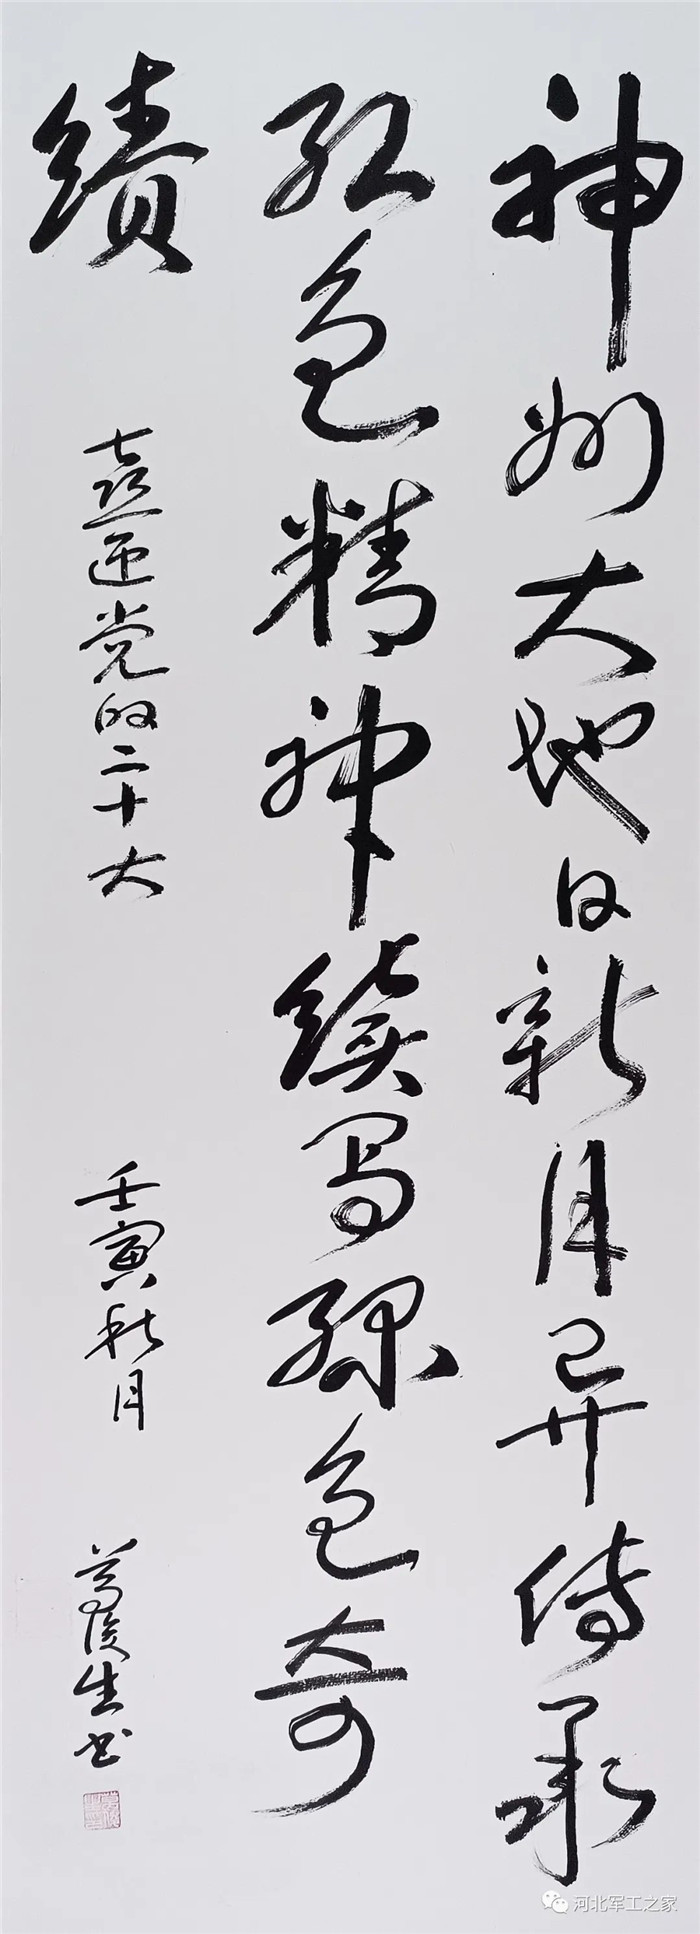 神州大地日新月异传承
红色精神续写绿色奇
绩
喜迎党的二十大
壬寅秋月
生书
河北军工之家